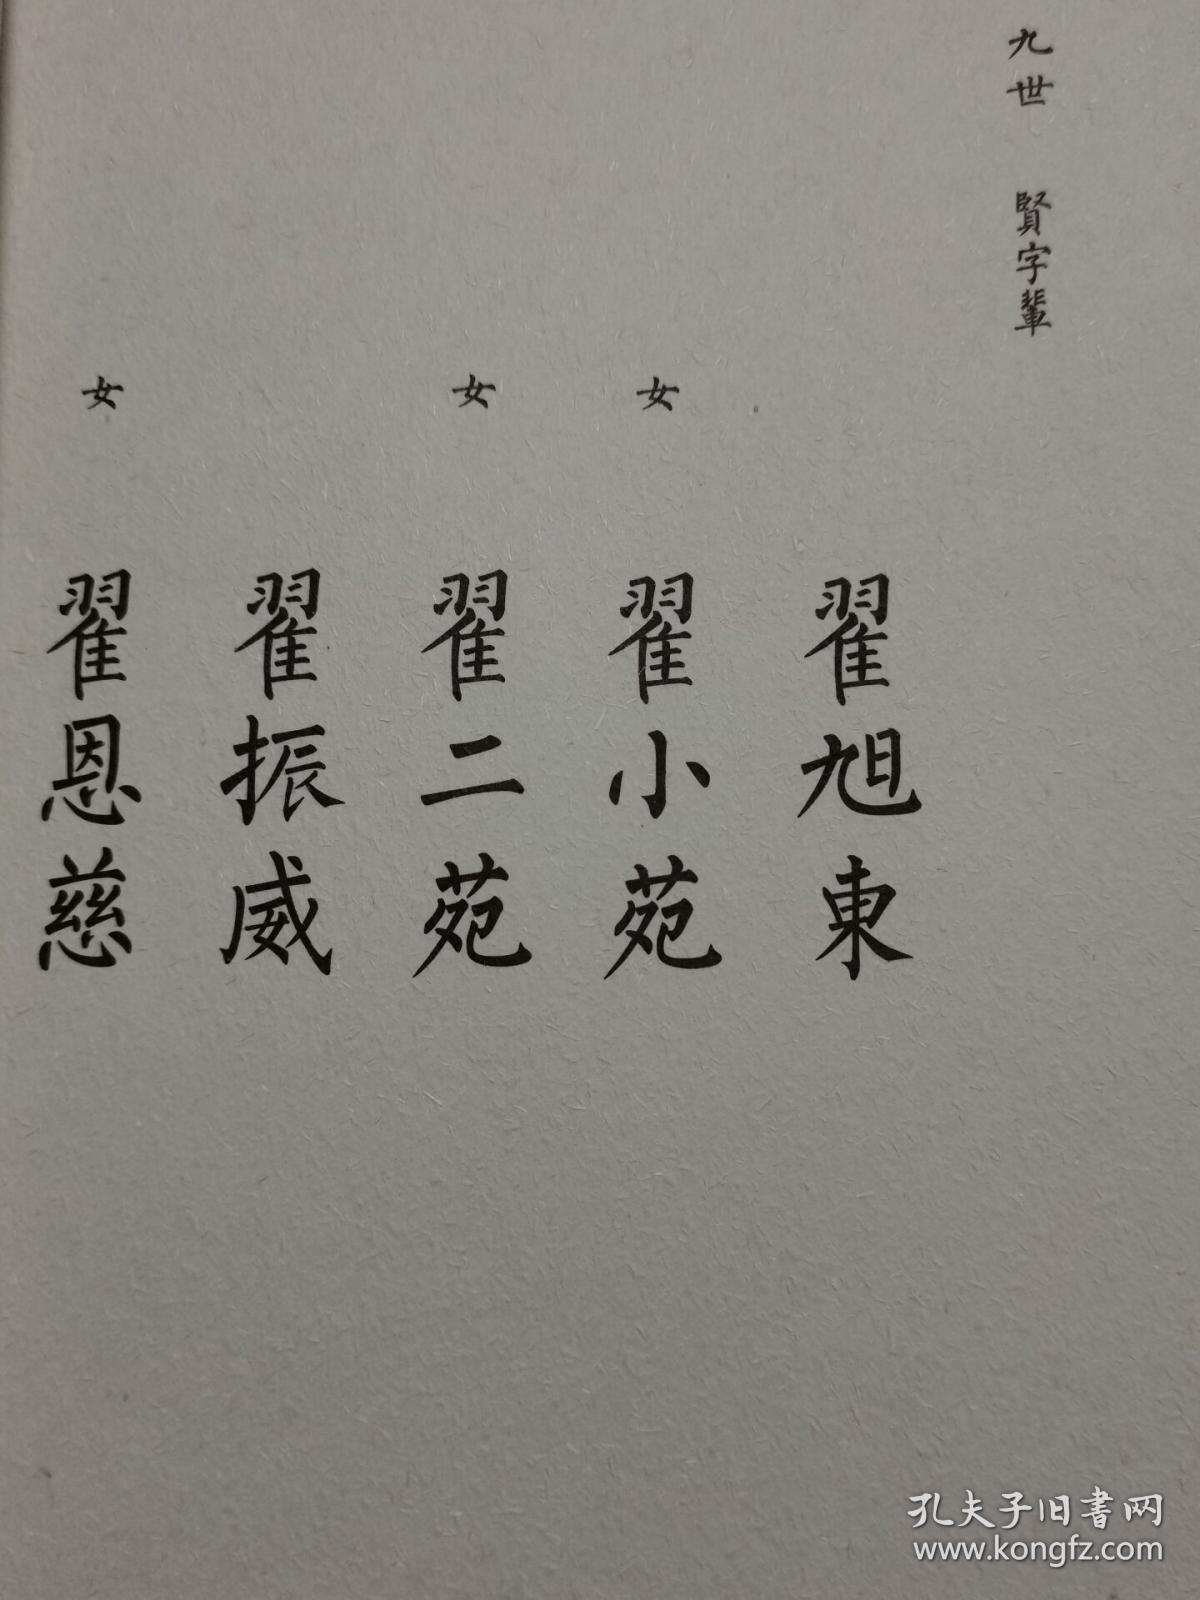 九世 賢字輩
翟旭東
女 翟小苑
女 翟二苑
翟振威
女 翟恩慈
孔夫子旧書网
www.kongfz.com